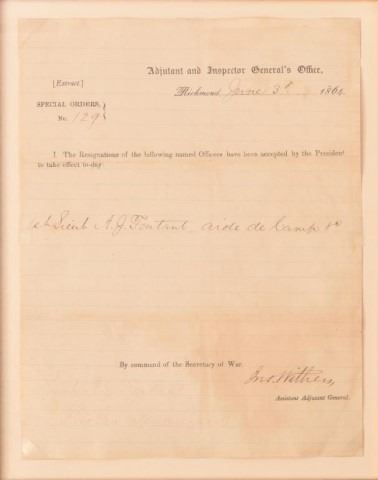 Adjutant and Inspector General's Office,
[Extract.]
Richmond, June 3d 1864.
SPECIAL ORDERS,
No. 129
I. The Resignations of the following named Officers have been accepted by the President
to take effect to-day
1st Lieut A. J. aide de Camp
By command of the Secretary of War.
Jno. Withers,
Assistant Adjutant General.